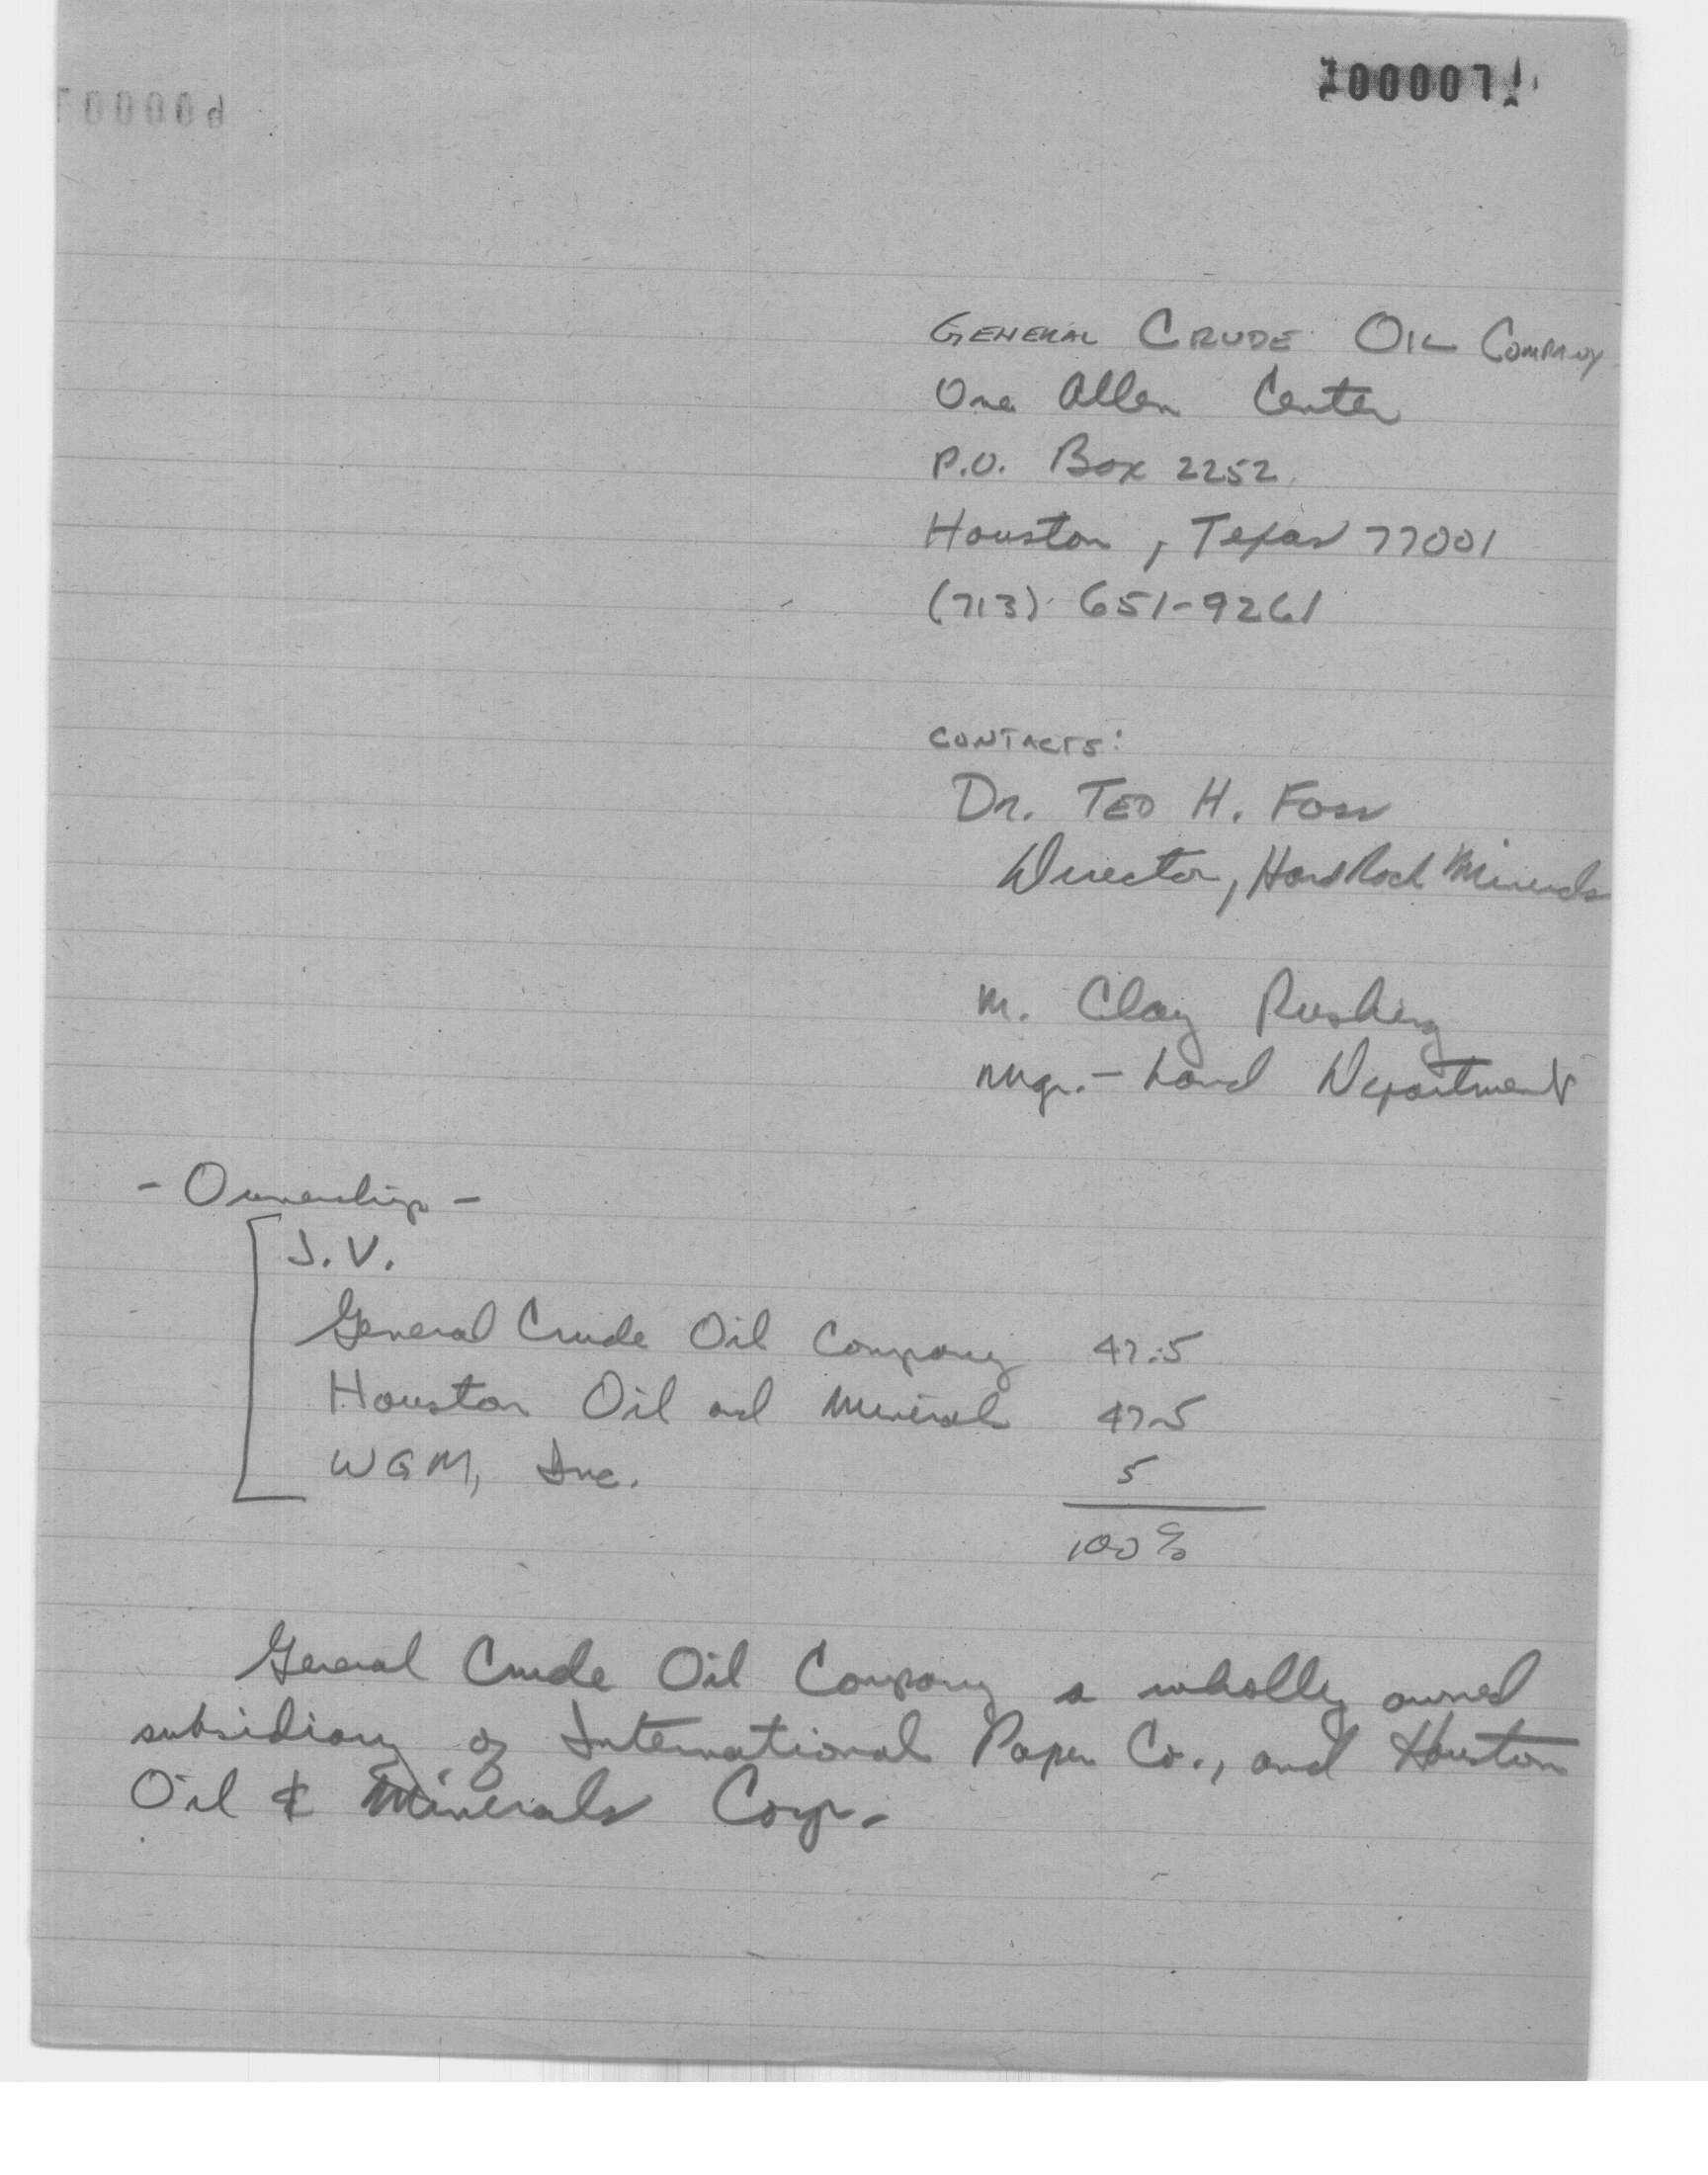 GENERAL CRUDE OIL COMPANY
One Allen Center
P.O. Box 2252
Houston, Texas 77001
(713) 651-9261
CONTACTS:
Dr. TED H. Foss
Director, Hard Rock Minerals
M. Clay Rushing
Mgr. - Land Department
- Ownership -
J.V.
General Crude Oil Company 47.5
Houston Oil and Minerals 47.5
WGM, Inc. 5
100%
General Crude Oil Company a wholly owned
subsidiary of International Paper Co., and Houston
Oil & Minerals Corp.